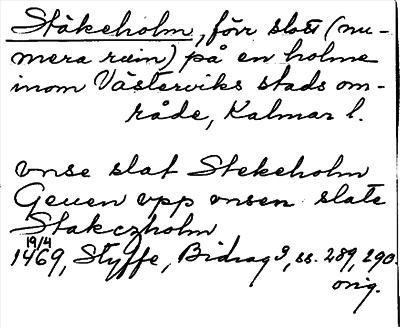 Stäkeholm, förr slott (nu-
mera ruin) på en holme
inom Västerviks stads om-
råde, Kalmar l.
vnse slat Stekeholm
Geuen vpp vnsen slate
Stakczholm
19/4
1469, Styffe, Bidrag 3, ss. 289, 290.
orig.